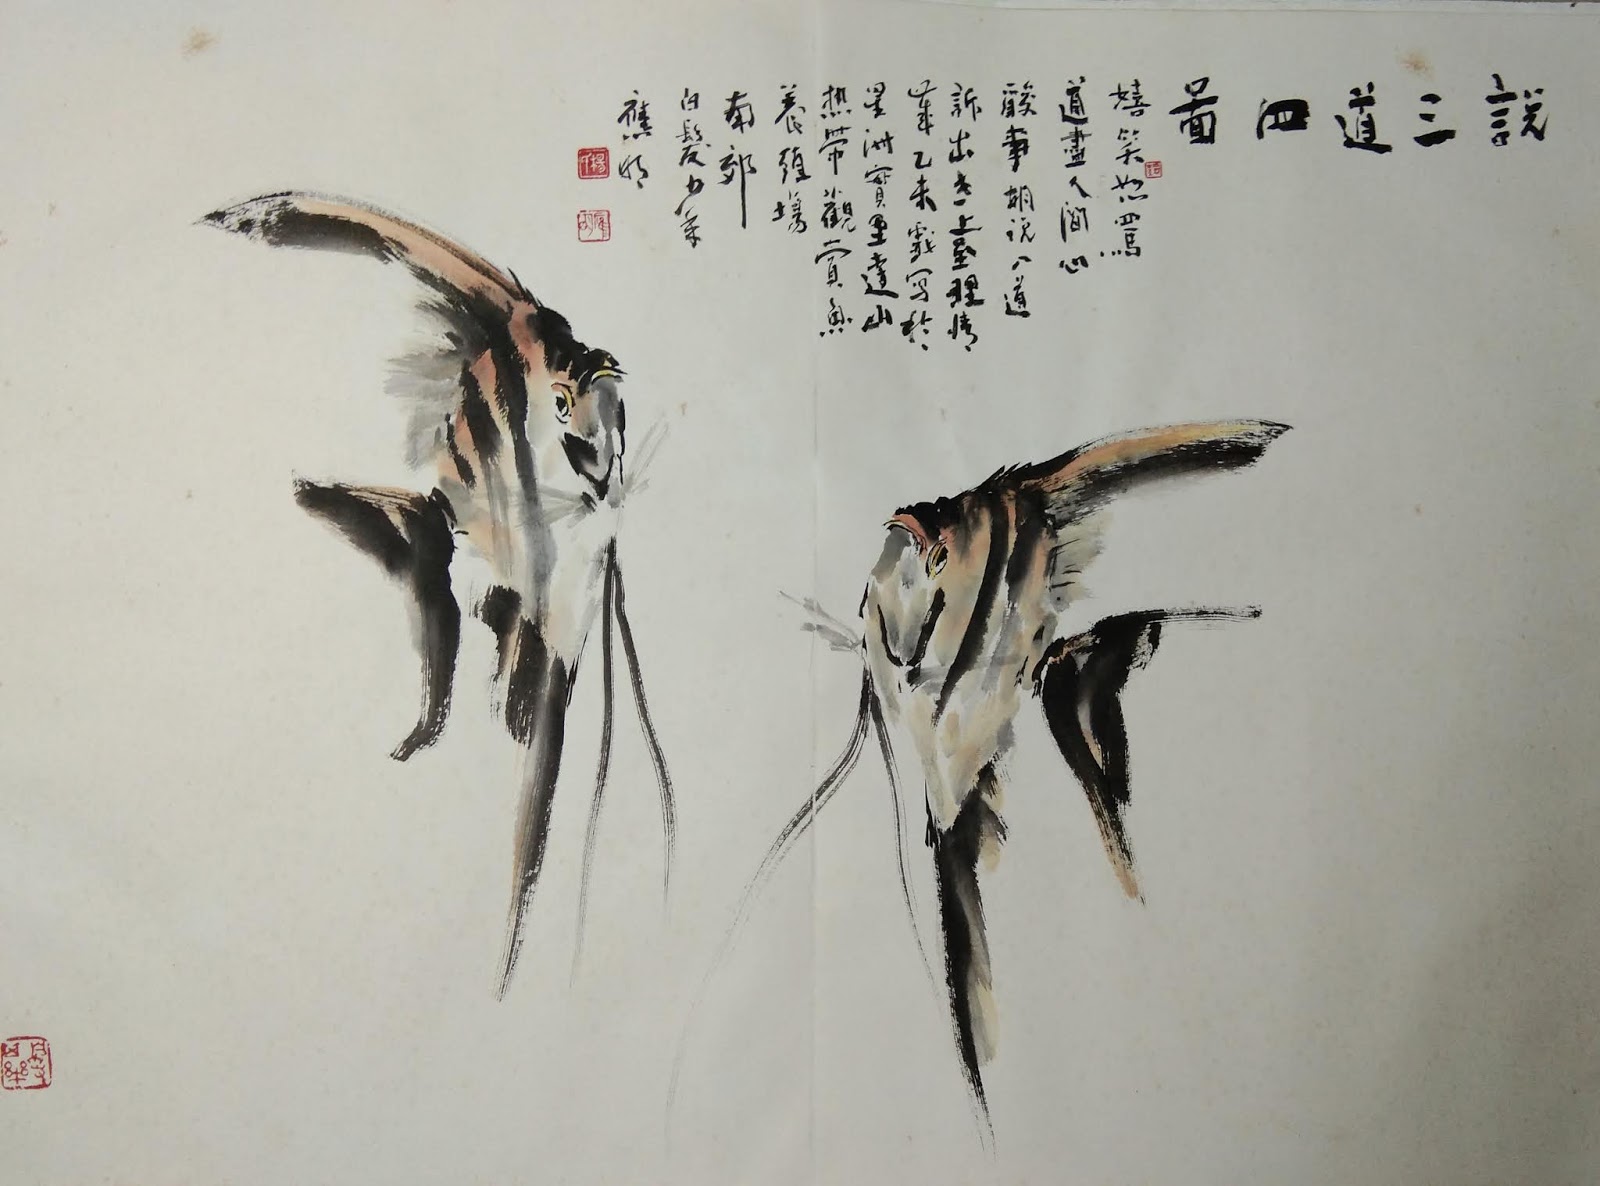 說三道四圖
嬉笑怒罵
道盡人間心
酸事胡説八道
訴出世上至理情
乙未戲写於
星洲實里達山
熱帶觀賞魚
養殖場
南郊
白髮少年